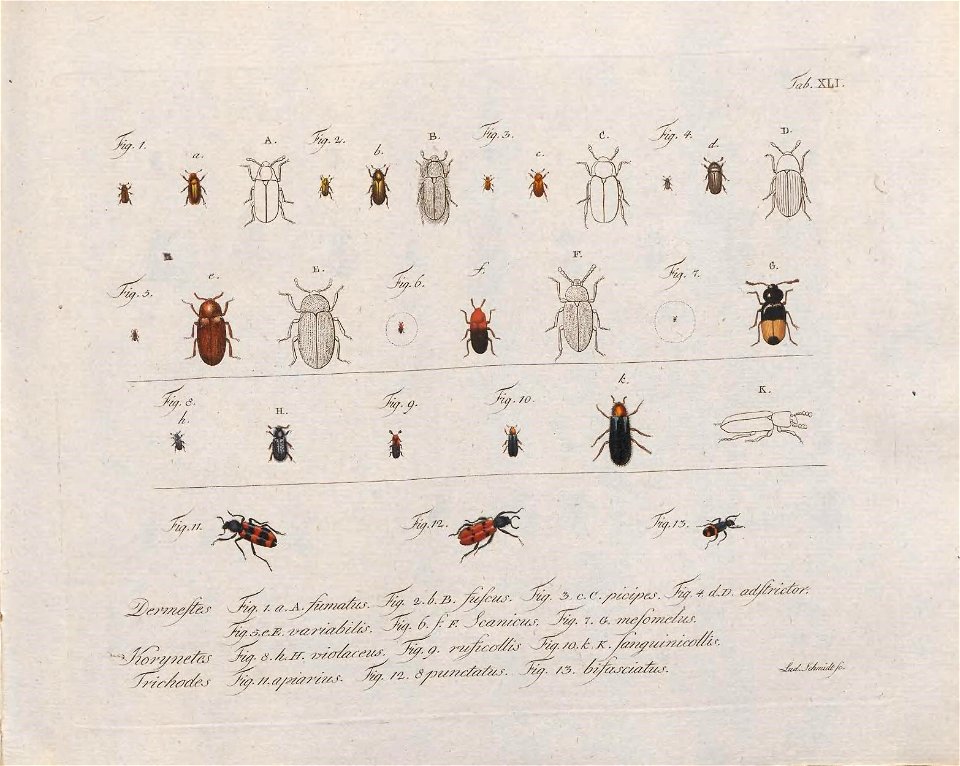 Tab. XLI.
Fig. 1. a. A. Fig. 2. b. B. Fig. 3. c. C. Fig. 4. d. D.
Fig. 5. e. E. Fig. 6. f. F. Fig. 7. G.
Fig. 8. h. H. Fig. 9. Fig. 10. k. K.
Fig. 11. Fig. 12. Fig. 13.
Dermeſtes Fig. 1. a. A. fumatus. Fig. 2. b. B. fuſcus. Fig. 3. c. C. picipes. Fig. 4. d. D. adſtrictor.
Fig. 5. e. E. variabilis. Fig. 6. f. F. Scanicus. Fig. 7. G. meſomelus.
Korynetes Fig. 8. h. H. violaceus. Fig. 9. ruficollis Fig. 10. k. K. ſanguinicollis.
Trichodes Fig. 11. apiarius. Fig. 12. 8 punctatus. Fig. 13. bifasciatus.
Lud. Schmidt ſc.